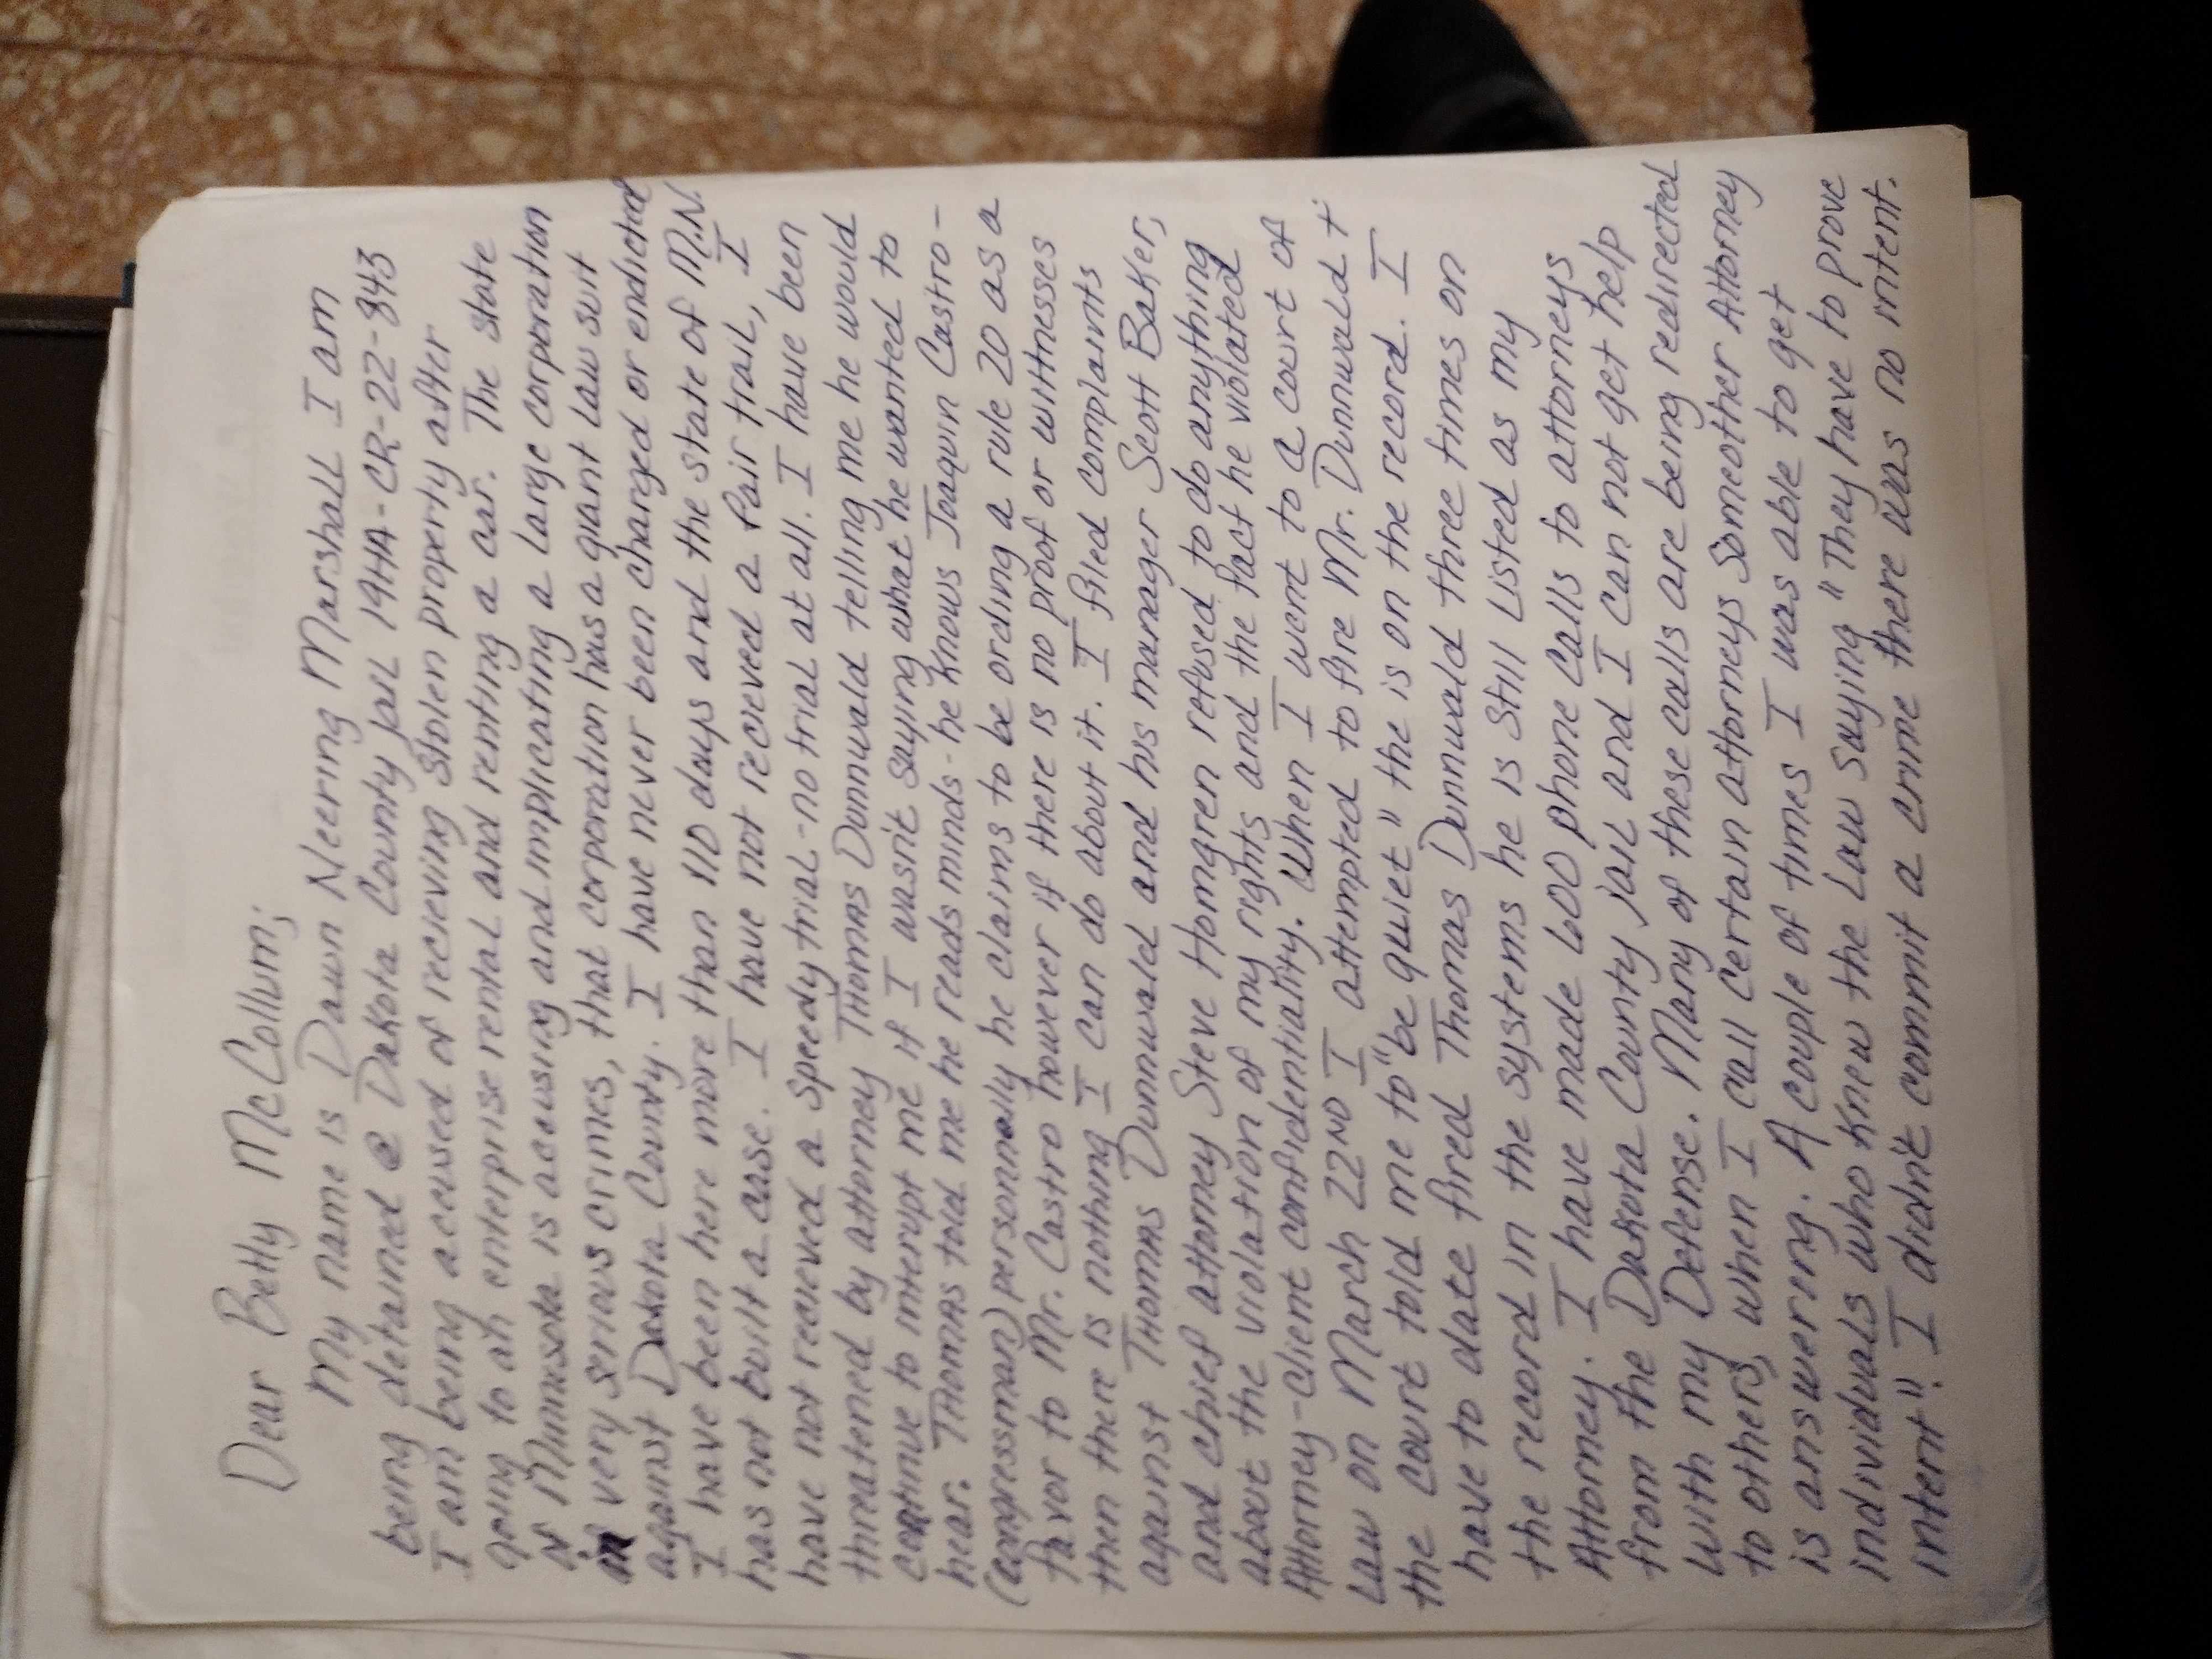 Dear Betty McCollum;
My name is Dawn Neering Marshall I am
being detained @ Dakota County jail 19HA-CR-22-843
I am being accused of recieving stolen property after
going to an enterprise rental and renting a car. The state
of Minnesota is accusing and implicating a large corporation
in very serious crimes, that corporation has a giant law suit
against Dakota County. I have never been charged or endicted
I have been here more than 110 days and the state of M.N.
has not built a case. I have not recieved a fair trail, I
have not recieved a speedy trial-no trial at all. I have been
threatened by attorney Thomas Dunnwald telling me he would
continue to interupt me if I wasn't saying what he wanted to
hear. Thomas told me he reads minds-he knows Joaquin Castro-
(congressman) personnally he claims to be ording a rule 20 as a
favor to Mr. Castro however if there is no proof or wittnesses
then there is nothing I can do about it. I filed complaints
against Thomas Dunnwald and his manager Scott Baker,
and chief attorney Steve Homgren refused to do anything
about the violation of my rights and the fact he violated
Attorney-client confidentiality. When I went to a court of
law on March 22ND I attempted to fire Mr. Dunnwald +
the court told me to "be quiet" the is on the record. I
have to date fired Thomas Dunnwald three times on
the record in the systems he is still listed as my
Attorney. I have made 600 phone calls to attorneys
from the Dakota County jail and I can not get help
with my Defense. Many of these calls are being redirected
to others, when I call certain attorneys someother Attorney
is answering. A couple of times I was able to get
individuals who knew the law saying "They have to prove
intent". I didn't commit a crime there was no intent.